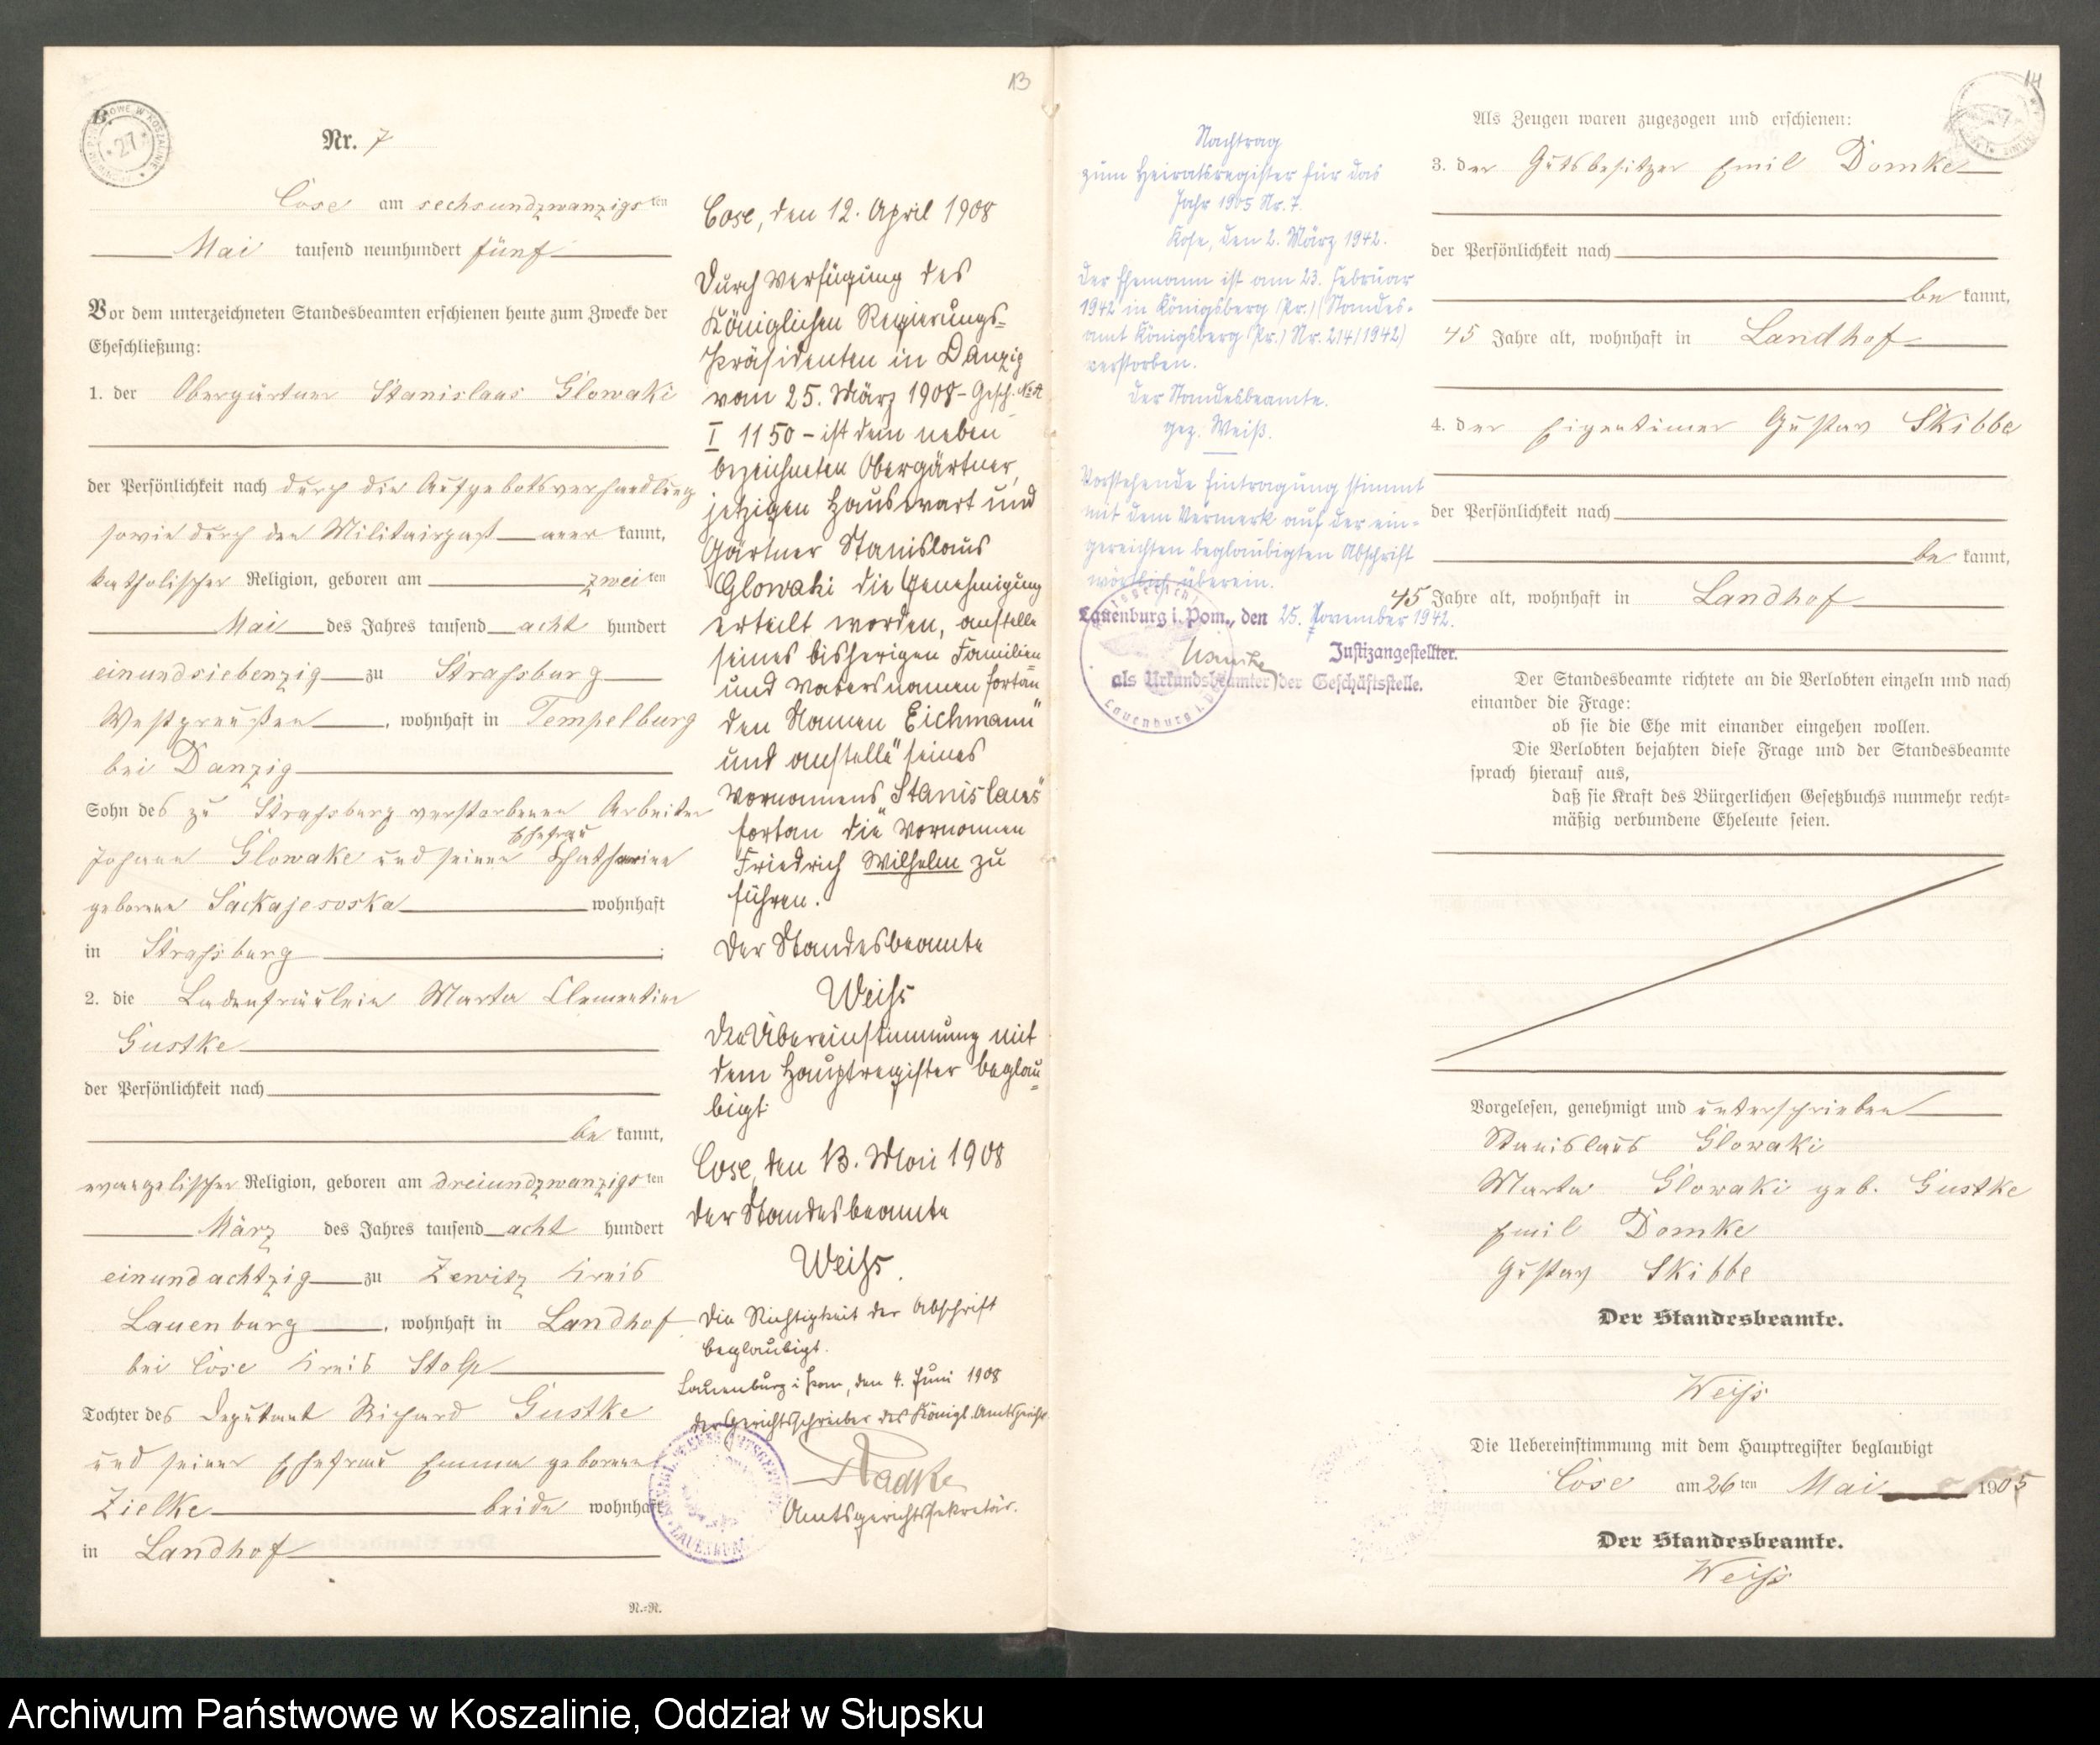 13
B.
27
Nr. 7
Cose am sechsundzwanzigsten
Mai tausend neunhundert fünf
Vor dem unterzeichneten Standesbeamten erschienen heute zum Zwecke der
Eheschließung:
1. der Obergärtner Stanislaus Glowaki
der Persönlichkeit nach durch die Aufgebotsverhandlung
sowie durch den Militairpaß aner kannt,
katholischer Religion, geboren am zweiten
Mai des Jahres tausend acht hundert
einundsiebenzig zu Strassburg
Westpreußen, wohnhaft in Tempelburg
bei Danzig
Sohn des zu Strassburg verstorbenen Arbeiter
Ehefrau
Johann Glowake und seiner Chatharina
geborene Sackajesoska wohnhaft
in Strassburg;
2. die Ladenfräulein Marta Clementine
Gustke
der Persönlichkeit nach
be kannt,
evangelischer Religion, geboren am dreiundzwanzigsten
März des Jahres tausend acht hundert
einundachtzig zu Zewitz Kreis
Lauenburg, wohnhaft in Landhof
bei Cose Kreis Stolp
Tochter des Deputant Richard Gustke
und seiner Ehefrau Emma geborene
Zielke beide wohnhaft
in Landhof
N.=R.
Cose, den 12. April 1908
Durch Verfügung des
Königlichen Regierungs-
Präsidenten in Danzig
vom 25. März 1908 - Gesch. No A
I 1150 - ist dem neben
bezeichneten Obergärtner,
jetzigen Hauswart und
Gärtner Stanislaus
Glowaki die Genehmigung
erteilt worden, anstelle
seines bisherigen Familien
= und Vatersnamen fortan
den Namen „Eichmann"
und anstelle seines
Vornamens „Stanislaus"
fortan die Vornamen
Friedrich Wilhelm zu
führen.
Der Standesbeamte
Weiss
Die Übereinstimmung mit
dem Hauptregister beglau=
bigt:
Cose, den 13. Mai 1908
Der Standesbeamte
Weiss.
Die Richtigkeit der Abschrift
beglaubigt.
Lauenburg i Pom, den 4. Juni 1908
der Gerichtsschreiber des Königl. Amtsgerichts.
Radke
Amtsgerichtssekretär.
14
Nachtrag
zum Heiratsregister für das
Jahr 1905 Nr. 7.
Kose, den 2. März 1942.
Der Ehemann ist am 23. Februar
1942 in Königsberg (Pr.) (Standes-
amt Königsberg (Pr.) Nr. 214/1942)
verstorben.
Der Standesbeamte.
gez. Weiß.
Vorstehende Eintragung stimmt
mit dem Vermerk auf der ein-
gereichten beglaubigten Abschrift
wörtlich überein.
Lauenburg i. Pom., den 25. November 1942.
Justizangestellter.
als Urkundsbeamter der Geschäftsstelle.
Als Zeugen waren zugezogen und erschienen:
3. der Gutsbesitzer Emil Domke
der Persönlichkeit nach
be kannt,
45 Jahre alt, wohnhaft in Landhof
4. der Eigentümer Gustav Skibbe
der Persönlichkeit nach
be kannt,
45 Jahre alt, wohnhaft in Landhof
Der Standesbeamte richtete an die Verlobten einzeln und nach
einander die Frage:
ob sie die Ehe mit einander eingehen wollen.
Die Verlobten bejahten diese Frage und der Standesbeamte
sprach hierauf aus,
daß sie Kraft des Bürgerlichen Gesetzbuchs nunmehr recht=
mäßig verbundene Eheleute seien.
Vorgelesen, genehmigt und unterschrieben
Stanislaus Glowaki
Marta Glowaki geb. Gustke
Emil Domke
Gustav Skibbe
Der Standesbeamte.
Weiss
Die Uebereinstimmung mit dem Hauptregister beglaubigt
Cose am 26ten Mai 1905
Der Standesbeamte.
Weiss
Archiwum Państwowe w Koszalinie, Oddział w Słupsku